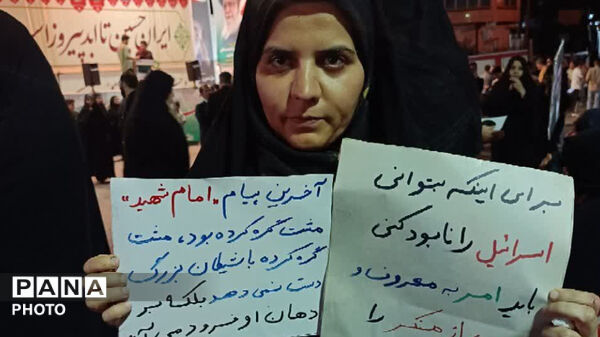 ایران حسین تا ابد پیروز است
برای اینکه بتوانی
اسرائیل را نابود کنی
باید امر به معروف و
از منکر را
آخرین پیام «امام شهید»
مشت گره کرده بود، مشت
گره کرده با شیطان بزرگ
دست نمی دهد بلکه بر
دهان او فرود می آید
PANA
PHOTO